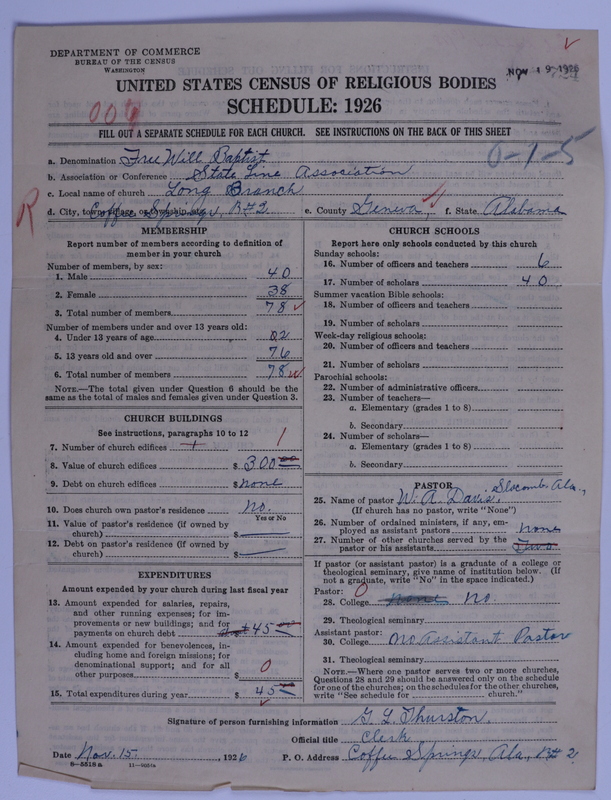 DEPARTMENT OF COMMERCE
BUREAU OF THE CENSUS
WASHINGTON
NOV 19 1926
UNITED STATES CENSUS OF RELIGIOUS BODIES
SCHEDULE: 1926
006
FILL OUT A SEPARATE SCHEDULE FOR EACH CHURCH. SEE INSTRUCTIONS ON THE BACK OF THIS SHEET
a. Denomination Free Will Baptist
0-1-5
b. Association or Conference State Line Association
c. Local name of church Long Branch
R
d. City, town, village, or township Coffee Springs, R#2 e. County Geneva, f. State Alabama
MEMBERSHIP
Report number of members according to definition of member in your church
Number of members, by sex:
1. Male 40
2. Female 38
3. Total number of members 78
Number of members under and over 13 years old:
4. Under 13 years of age 02
5. 13 years old and over 76
6. Total number of members 78
NOTE.—The total given under Question 6 should be the
same as the total of males and females given under Question 3.
CHURCH BUILDINGS
See instructions, paragraphs 10 to 12
7. Number of church edifices 1
8. Value of church edifices $300 00
9. Debt on church edifices $none
10. Does church own pastor's residence no.
Yes or No
11. Value of pastor's residence (if owned by
church) $
12. Debt on pastor's residence (if owned by
church) $
EXPENDITURES
Amount expended by your church during last fiscal year
13. Amount expended for salaries, repairs,
and other running expenses; for im-
provements or new buildings; and for
payments on church debt $45 00
14. Amount expended for benevolences, in-
cluding home and foreign missions; for
denominational support; and for all
other purposes $ 0
15. Total expenditures during year $45 00
CHURCH SCHOOLS
Report here only schools conducted by this church
Sunday schools:
16. Number of officers and teachers 6
17. Number of scholars 40
Summer vacation Bible schools:
18. Number of officers and teachers
19. Number of scholars
Week-day religious schools:
20. Number of officers and teachers
21. Number of scholars
Parochial schools:
22. Number of administrative officers
23. Number of teachers—
a. Elementary (grades 1 to 8)
b. Secondary
24. Number of scholars—
a. Elementary (grades 1 to 8)
b. Secondary
PASTOR Slocomb, Ala.,
25. Name of pastor W. A. Davis,
(If church has no pastor, write "None")
26. Number of ordained ministers, if any, em-
ployed as assistant pastors none
27. Number of other churches served by the
pastor or his assistants Two
If pastor (or assistant pastor) is a graduate of a college or
theological seminary, give name of institution below. (If
not a graduate, write "No" in the space indicated.)
Pastor: 0
28. College none no.
29. Theological seminary
Assistant pastor:
30. College no Assistant Pastor
31. Theological seminary
NOTE.—Where one pastor serves two or more churches,
Questions 28 and 29 should be answered only on the schedule
for one of the churches; on the schedules for the other churches,
write "See schedule for church."
Signature of person furnishing information G. L. Thurston.
Official title Clerk
Date Nov. 15. , 1926 P. O. Address Coffee Springs, Ala, R# 2
8-5518 a